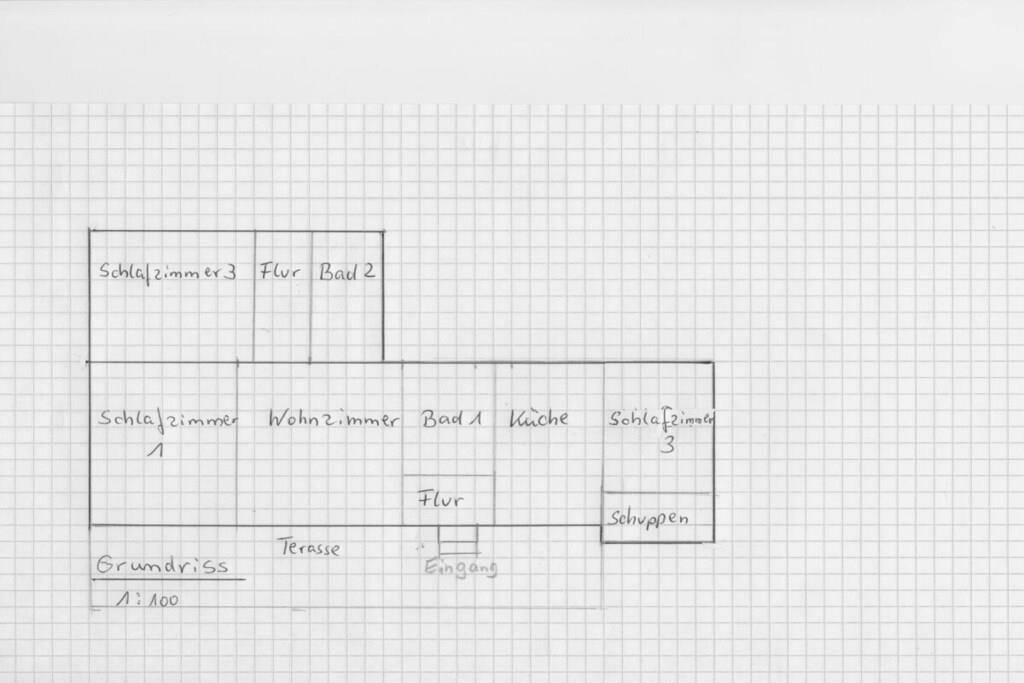 Schlafzimmer 3 Flur Bad 2
Schlafzimmer
1
Wohnzimmer
Bad 1
Küche
Schlafzimmer
3
Flur
Schuppen
Terasse
Eingang
Grundriss
1:100